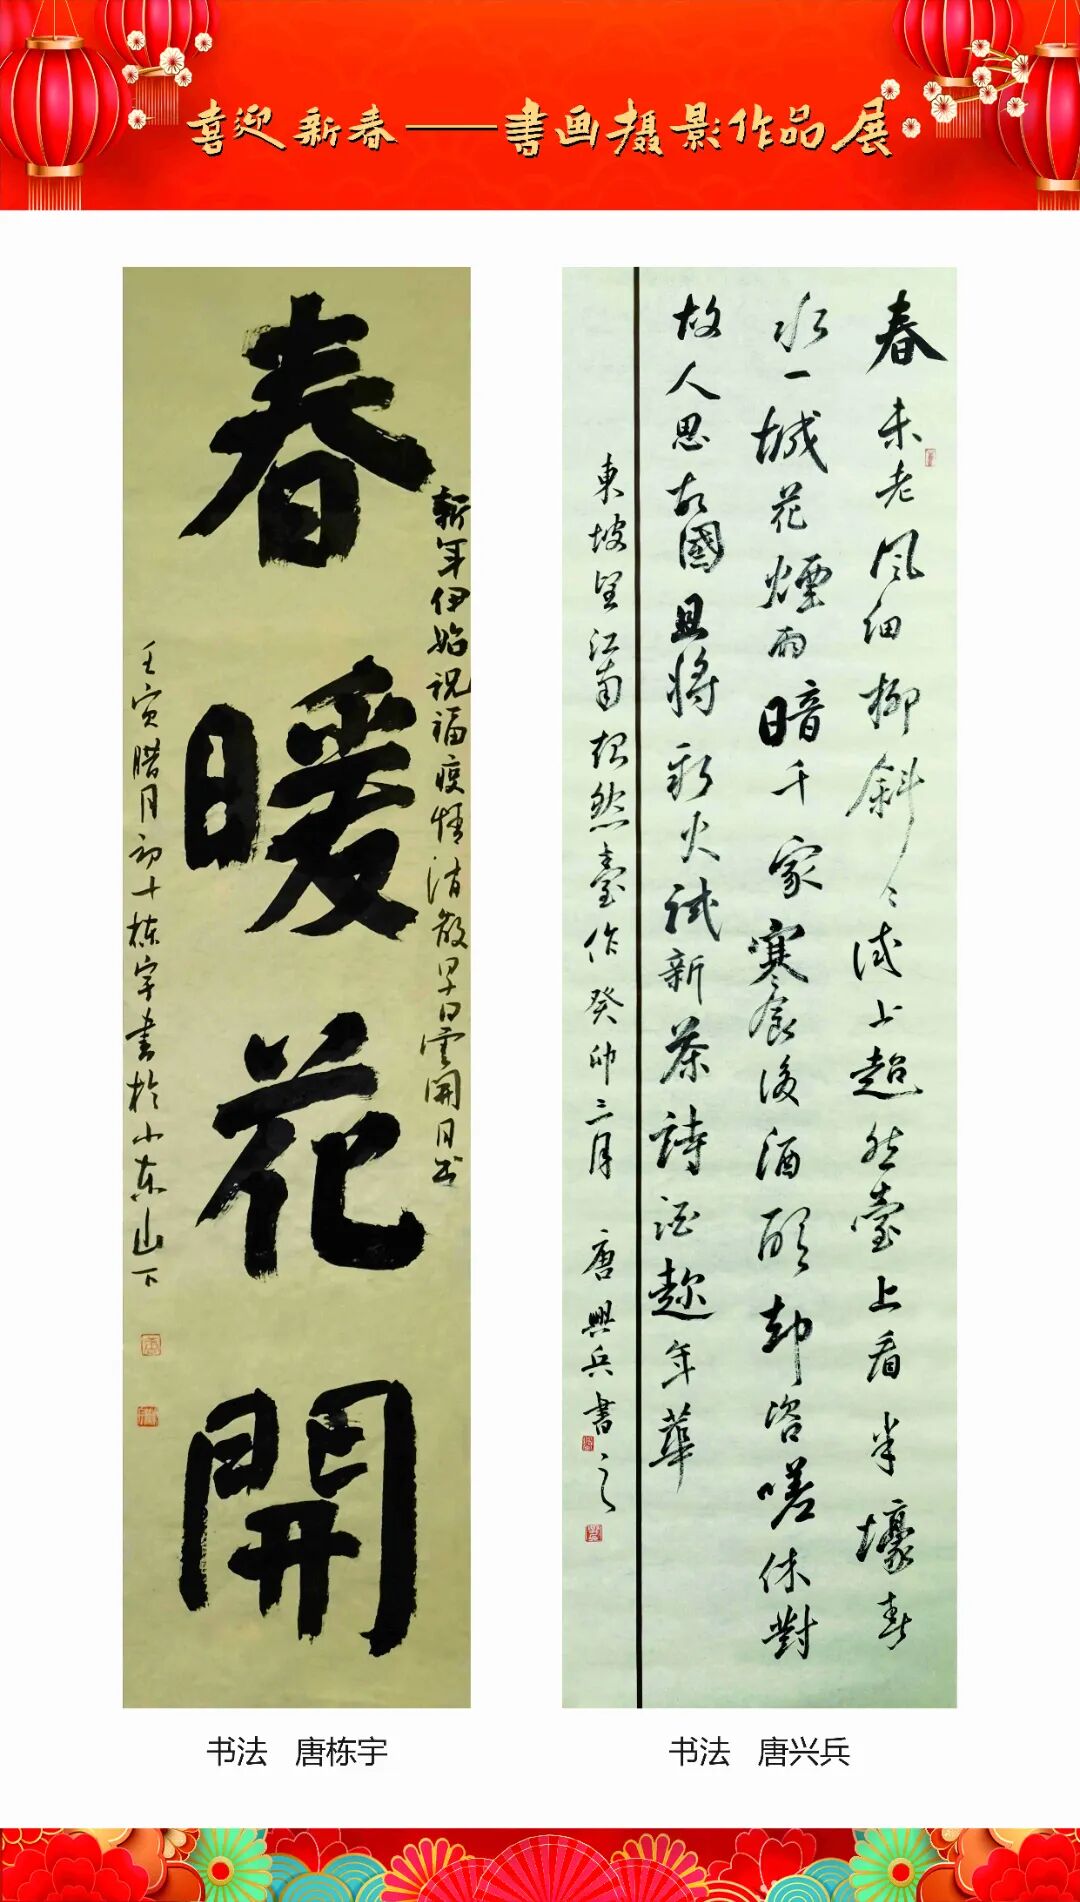 喜迎新春——書画摄影作品展
春暖花開
新年伊始祝福疫情消散早日雲開日出
壬寅腊月初十栋宇書於小东山下
春未老風细柳斜〻试上超然臺上看半壕春
水一城花煙雨暗千家寒食後酒醒却咨嗟休對
故人思故國且將新火試新茶詩酒趁年華
東坡望江南超然臺作癸卯三月 唐興兵書之
书法 唐栋宇
书法 唐兴兵